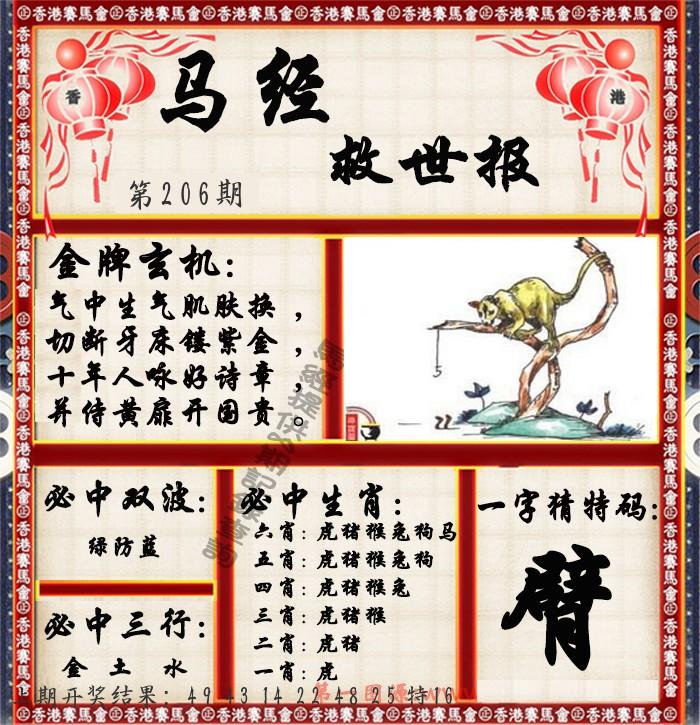 香港賽馬會 香港賽馬會 香港賽馬會 香港賽馬會 香港賽馬會 香港賽馬會 香港賽馬會
香
港
马经
救世报
第206期
金牌玄机:
气中生气肌肤换，
切断牙床镂紫金，
十年人咏好诗章，
并侍黄扉开国贵。
必中双波:
绿防蓝
必中三行:
金 土 水
必中生肖:
六肖: 虎猪猴兔狗马
五肖: 虎猪猴兔狗
四肖: 虎猪猴兔
三肖: 虎猪猴
二肖: 虎猪
一肖: 虎
一字猜特码:
臂
期开奖结果: 49 43 14 22 48 25 特16